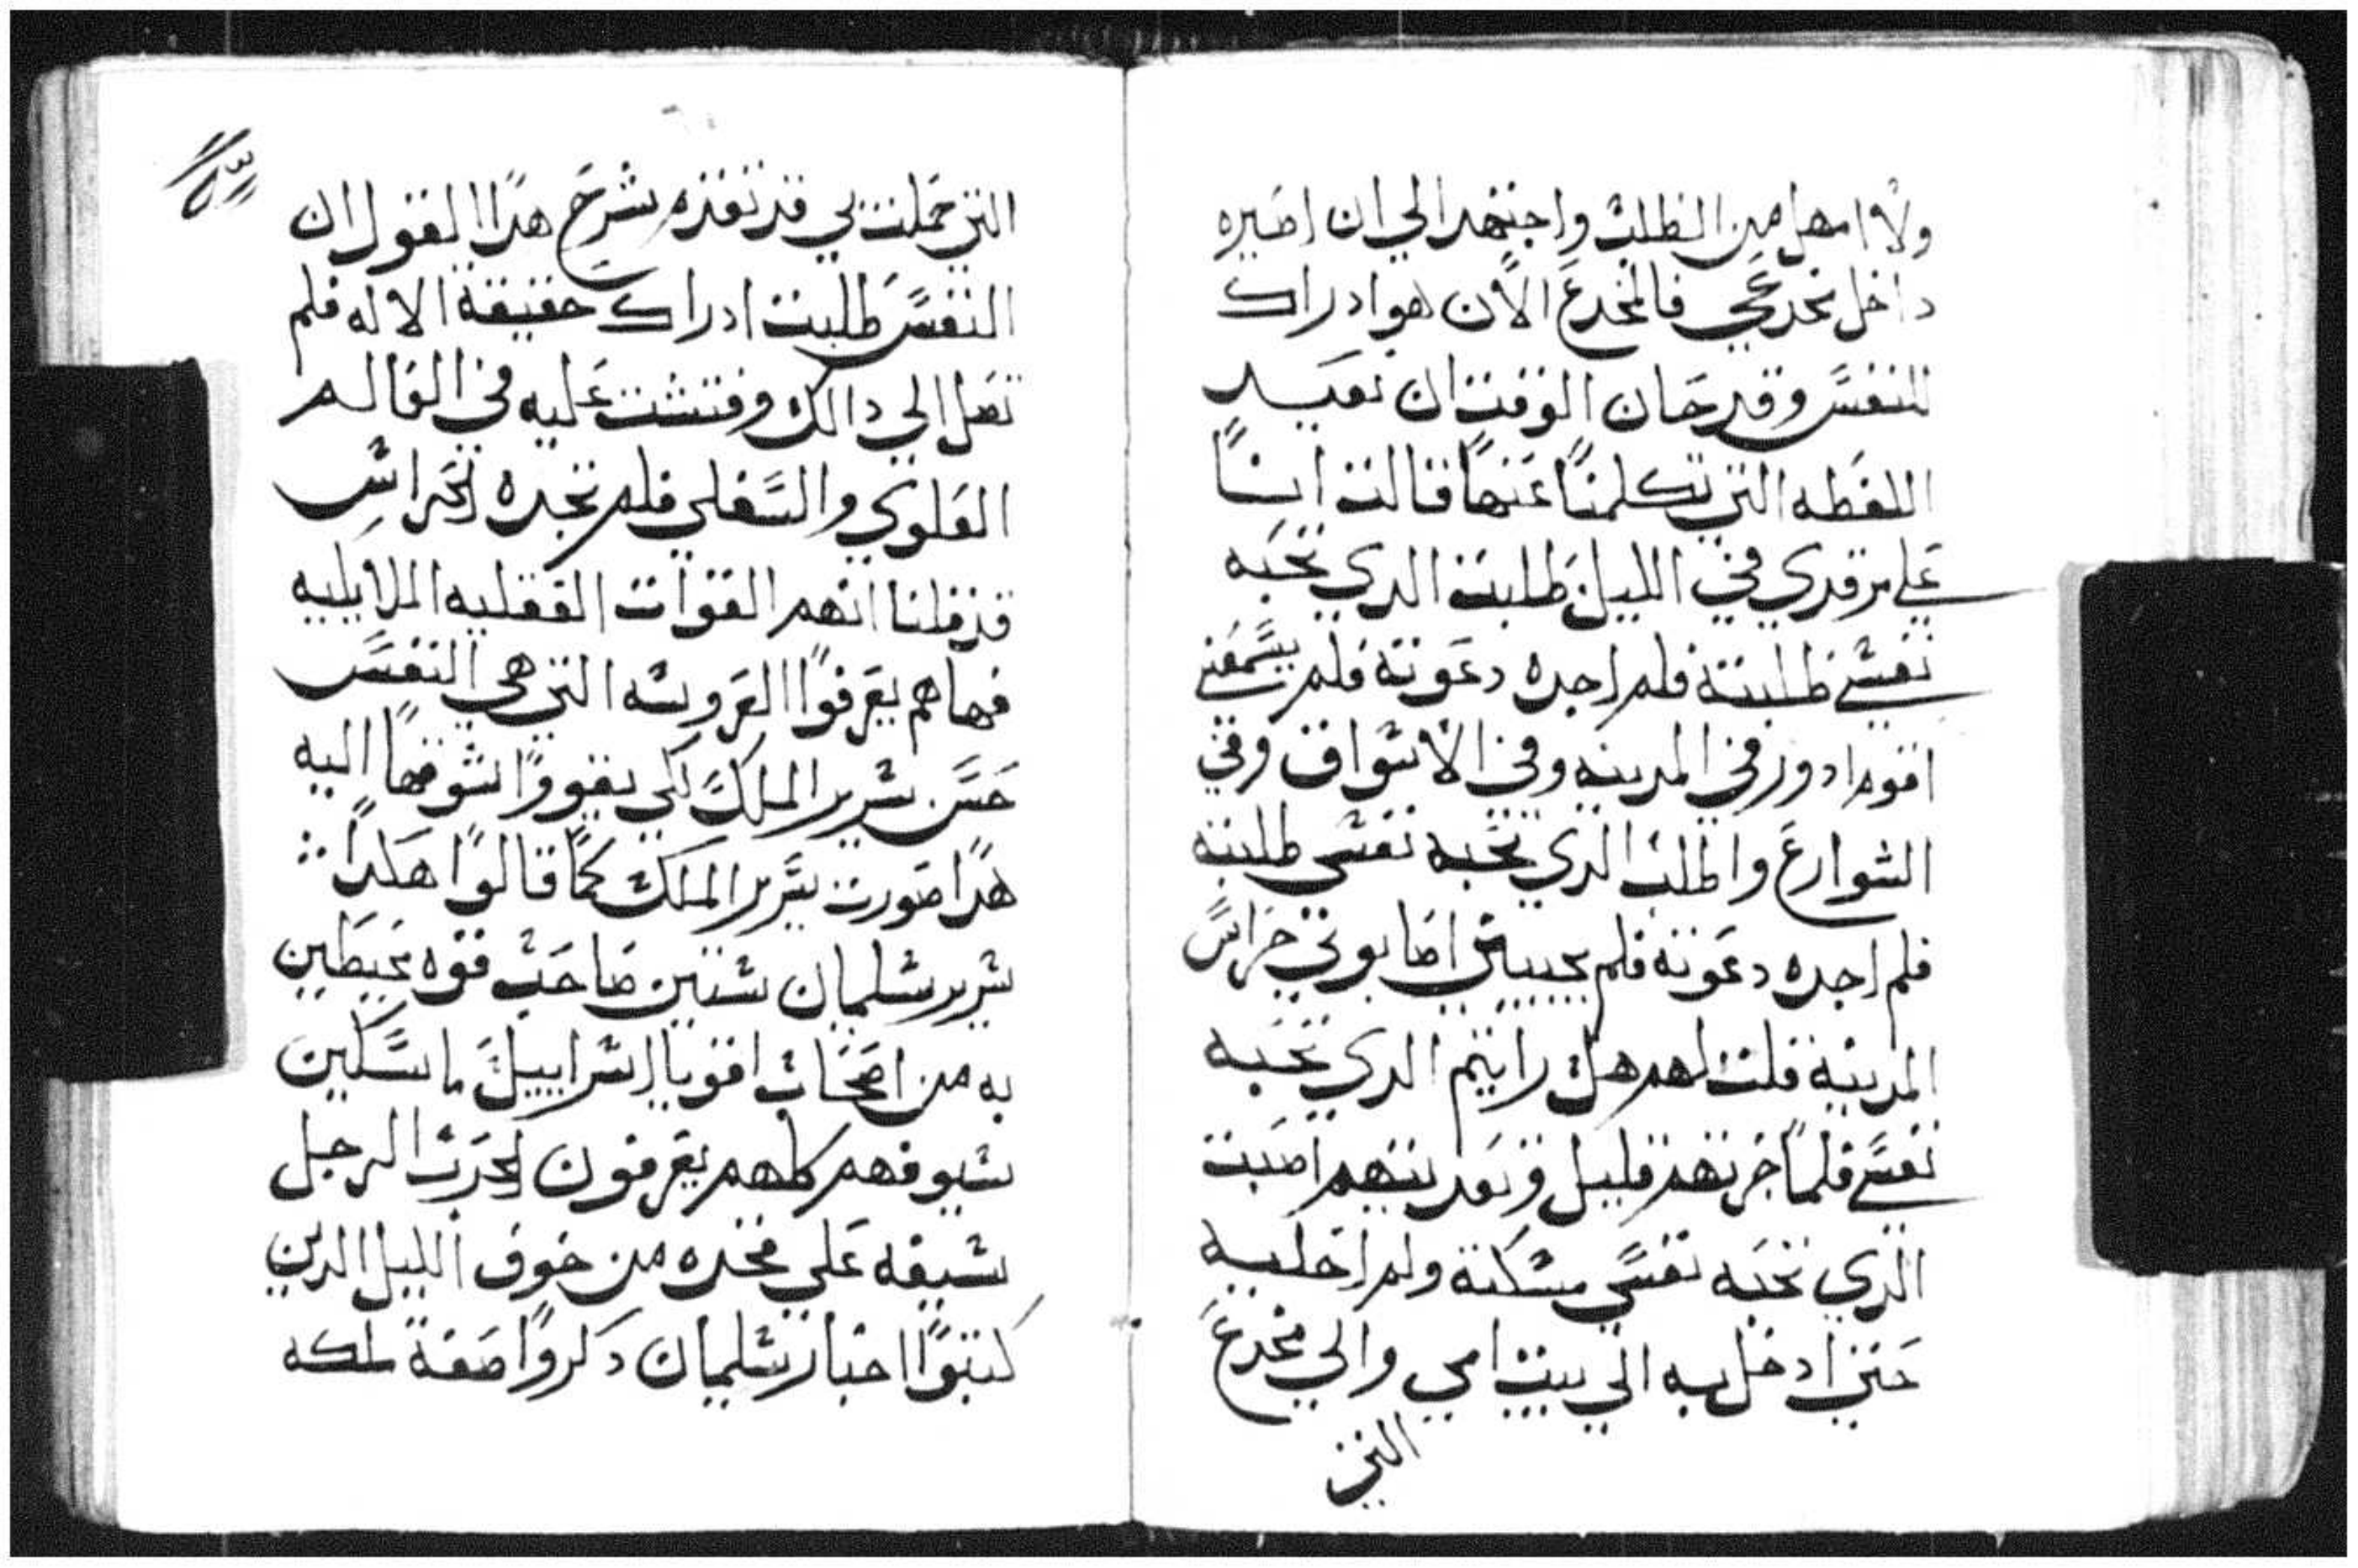 ولا امهل من الطلب واجتهد الي ان اصيره
داخل مخدعي فالمخدع الان هو ادراك
النفس وقد حان الوقت ان نعيد
اللفظه التي تكلمنا عنها قالت انا
علي مرقدي في الليل طلبت الدي تحبه
نفسي طلبته فلم اجده دعوته فلم يسمعني
اقوم ادور في المدينه وفي الاسواق وفي
الشوارع واطلب الدي تحبه نفسي طلبته
فلم اجده دعوته فلم يجيبني اصابوني حراس
المدينه قلت لهم هل رايتم الدي تحبه
نفسي فلما جزتهم قليل وبعد بينهم اصبت
الدي تحبه نفسي مسكته ولم اخليه
حتي ادخل به الي بيت امي والي مخدع
التي
التي حملت بي قد تقدم شرح هدا القول ان
النفس طلبت ادراك حقيقة الاله فلم
تصل الي دالك وفتشت عليه في العالم
العلوي والسفلي فلم تجده الحراس
قد قلنا انهم القوات العقليه الملايكيه
فهاهم يعرفوا العروسه التي هي النفس
حسن سرير الملك لكي يقووا شوقها اليه
هدا صورت سرير الملك كما قالوا هكدا
سرير سليمان ستين صاحب قوه محيطين
به من اصحاب اقويا اسراييل ماسكين
سيوفهم كلهم يعرفون الحرب الرجل
سيفه علي فخده من خوف الليل الدين
كتبوا اخبار سليمان دكروا صفة ملكه